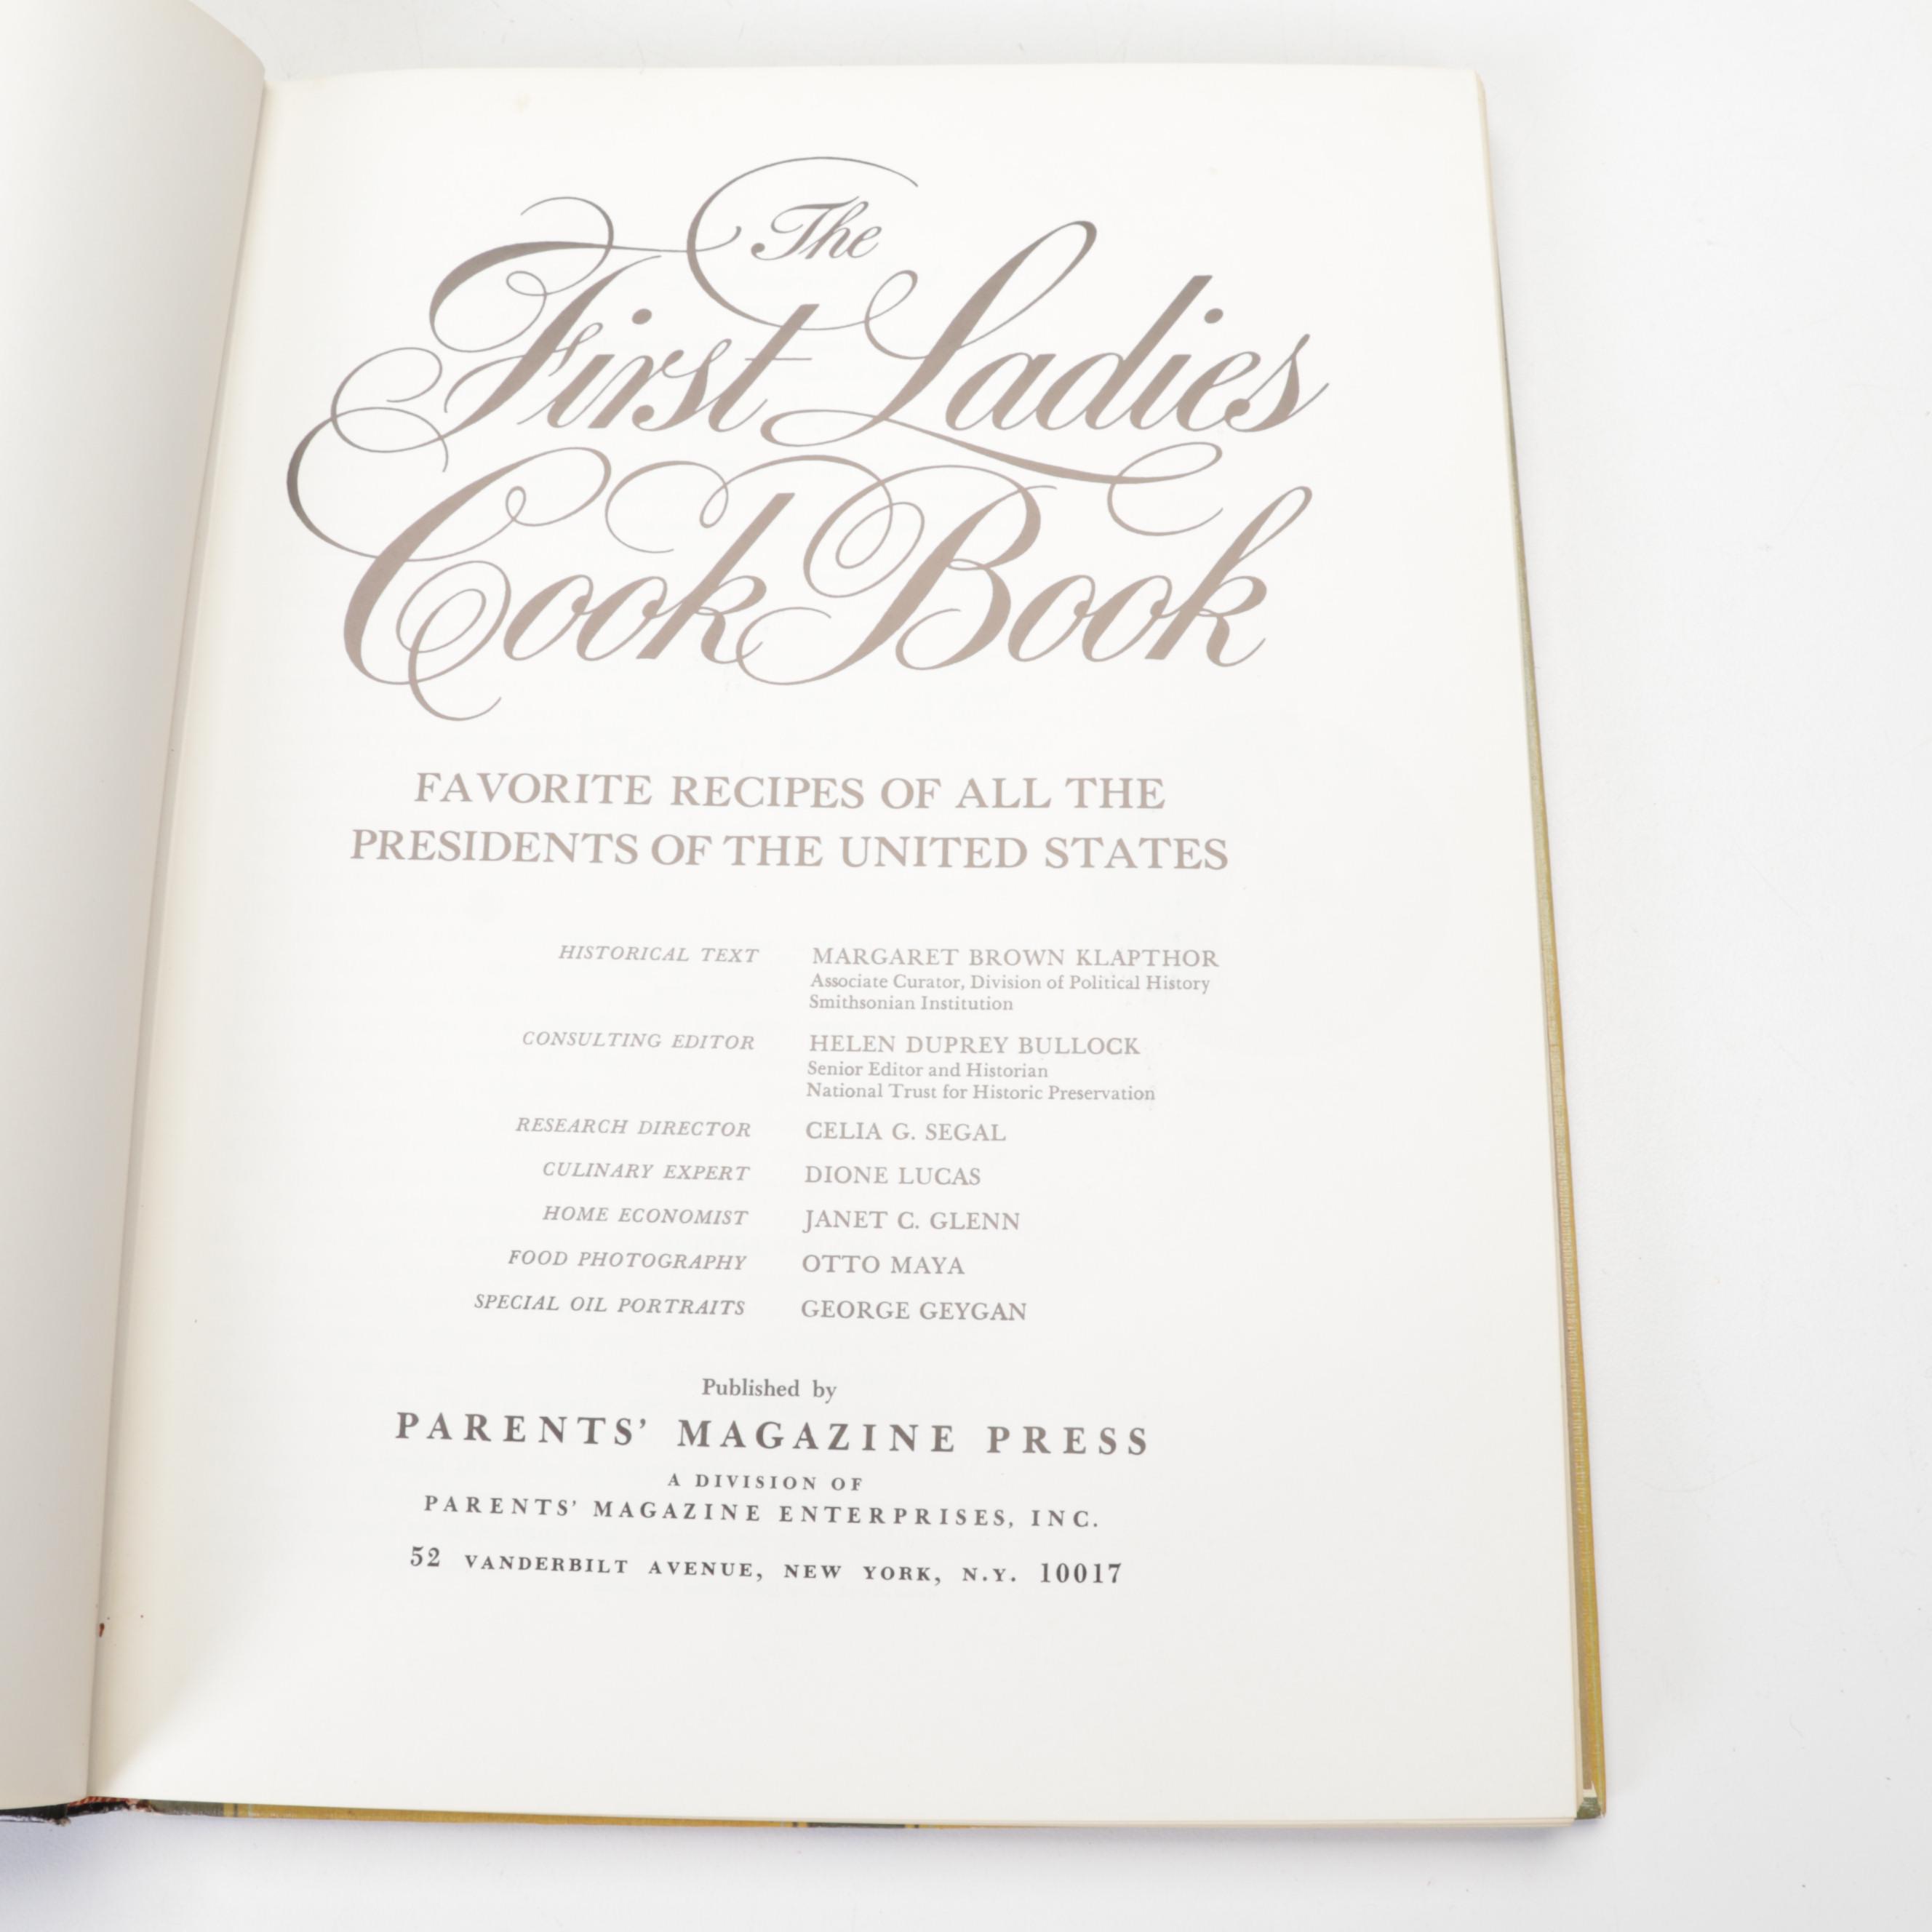 The
First Ladies
Cook Book
FAVORITE RECIPES OF ALL THE
PRESIDENTS OF THE UNITED STATES
HISTORICAL TEXT MARGARET BROWN KLAPTHOR
Associate Curator, Division of Political History
Smithsonian Institution
CONSULTING EDITOR HELEN DUPREY BULLOCK
Senior Editor and Historian
National Trust for Historic Preservation
RESEARCH DIRECTOR CELIA G. SEGAL
CULINARY EXPERT DIONE LUCAS
HOME ECONOMIST JANET C. GLENN
FOOD PHOTOGRAPHY OTTO MAYA
SPECIAL OIL PORTRAITS GEORGE GEYGAN
Published by
PARENTS' MAGAZINE PRESS
A DIVISION OF
PARENTS' MAGAZINE ENTERPRISES, INC.
52 VANDERBILT AVENUE, NEW YORK, N.Y. 10017